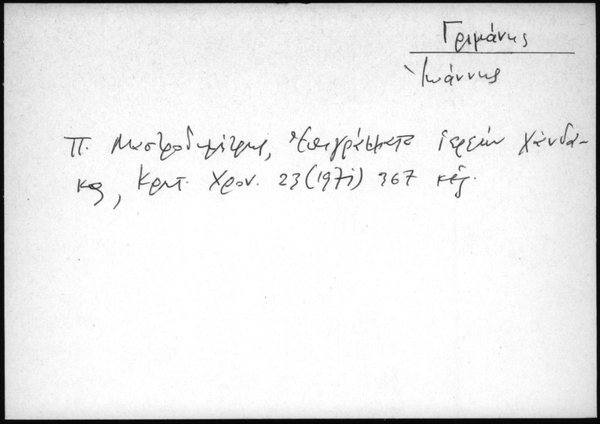 Γριμάνης
Ἰωάννης
Π. Μαστροδημήτρης, Ἐπιγράμματα ἱερέων Χάνδα-
κος, Κρητ. Χρον. 23 (1971) 367 κἑξ.